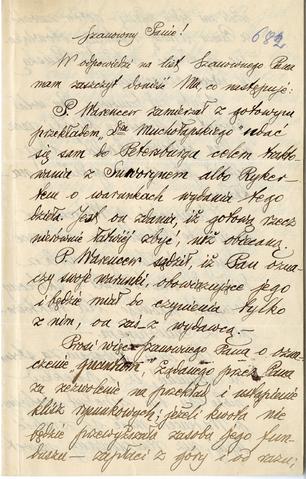 682
Szanowny Panie!
W odpowiedzi na list Szanownego Pana
mam zaszczyt donieść Mu, co następuje:
P. Warencew zamierzał z gotowym
przekładem "Dra Muchołapskiego" udać
się sam do Petersburga celem trakto-
wania z Suworynem albo Ryker-
tem o warunkach wydania tego
dzieła. Jest on zdania, iż gotową rzecz
nierównie łatwiej zbyć, niż obiecaną.
P. Warencew sądził, iż Pan ozna-
czy swoje warunki, obowiązujące jego
i będzie miał do czynienia tylko
z nim, on zaś z wydawcą.—
Prosi więc Szanownego Pana o ozna-
czenie quantum, żądanego przez Pana
za zezwolenie na przekład i ustąpienie
klisz rysunkowych; jeżeli kwota nie
będzie przewyższała zasobu jego fun-
duszu — zapłaci z góry i od razu;